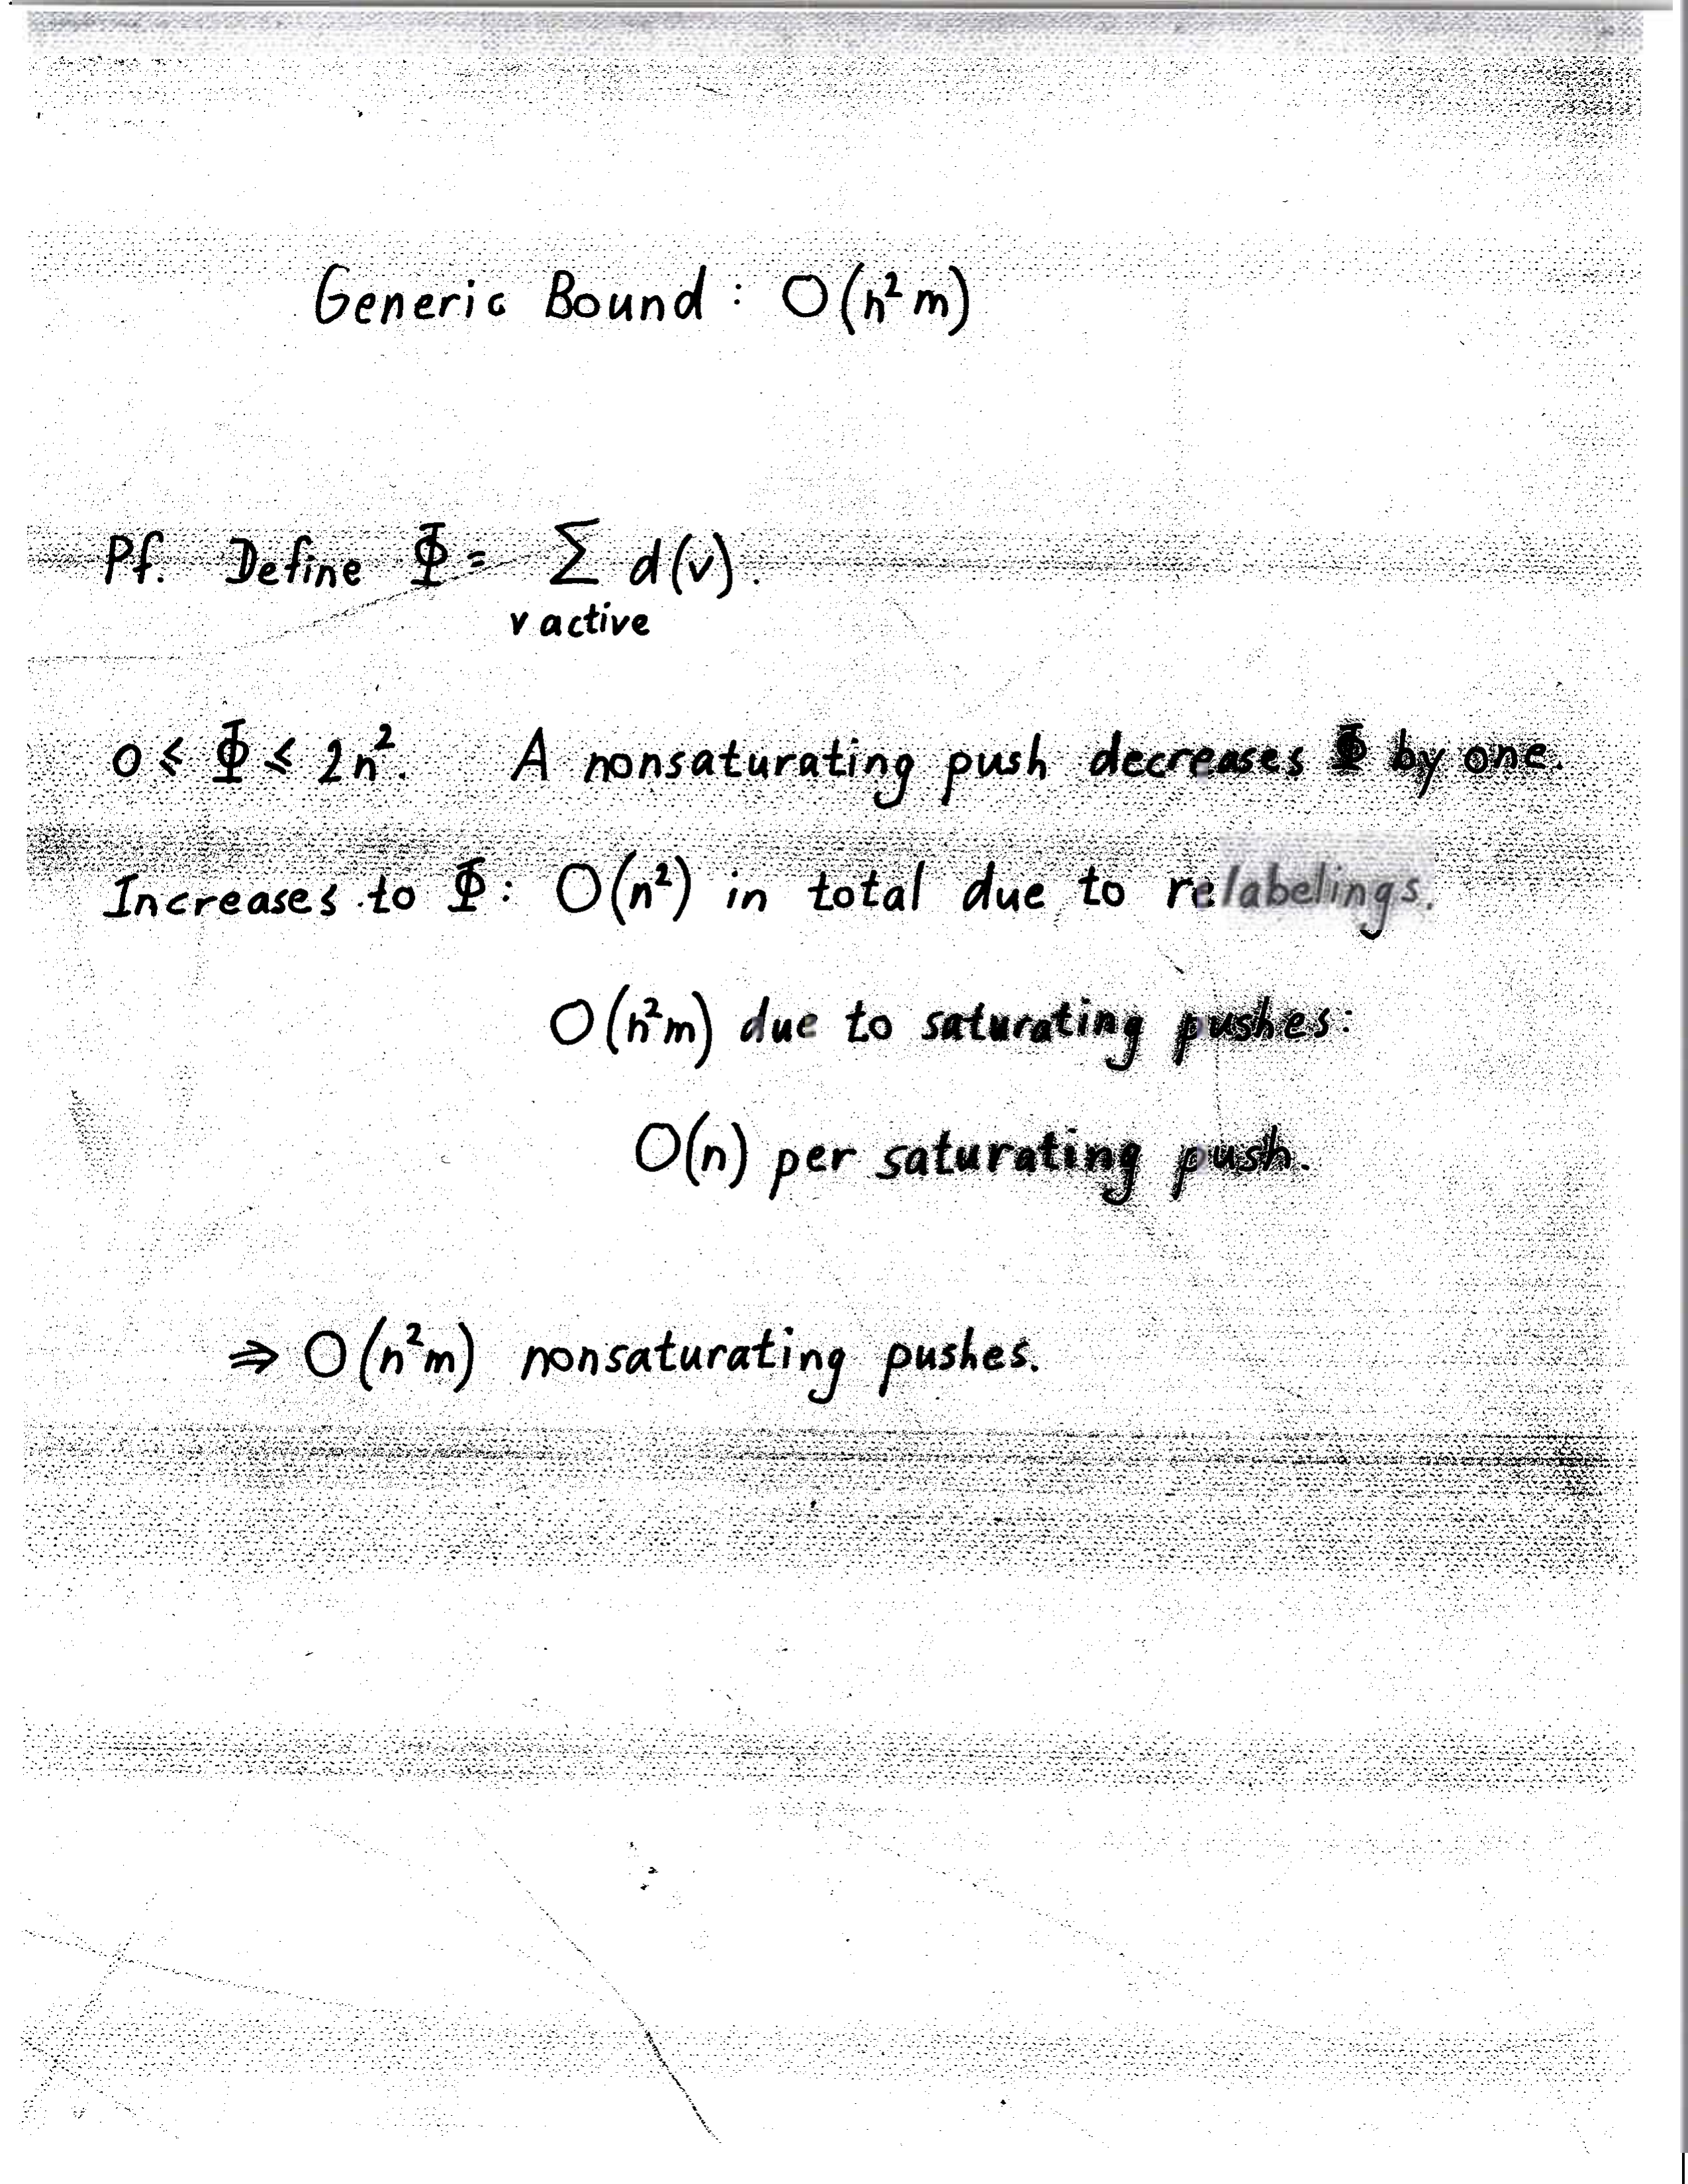 Generic Bound: O(n²m)
Pf. Define Φ = Σ d(v).
v active
0 ≤ Φ ≤ 2n². A nonsaturating push decreases Φ by one.
Increases to Φ: O(n²) in total due to relabelings.
O(n²m) due to saturating pushes:
O(n) per saturating push.
⇒ O(n²m) nonsaturating pushes.